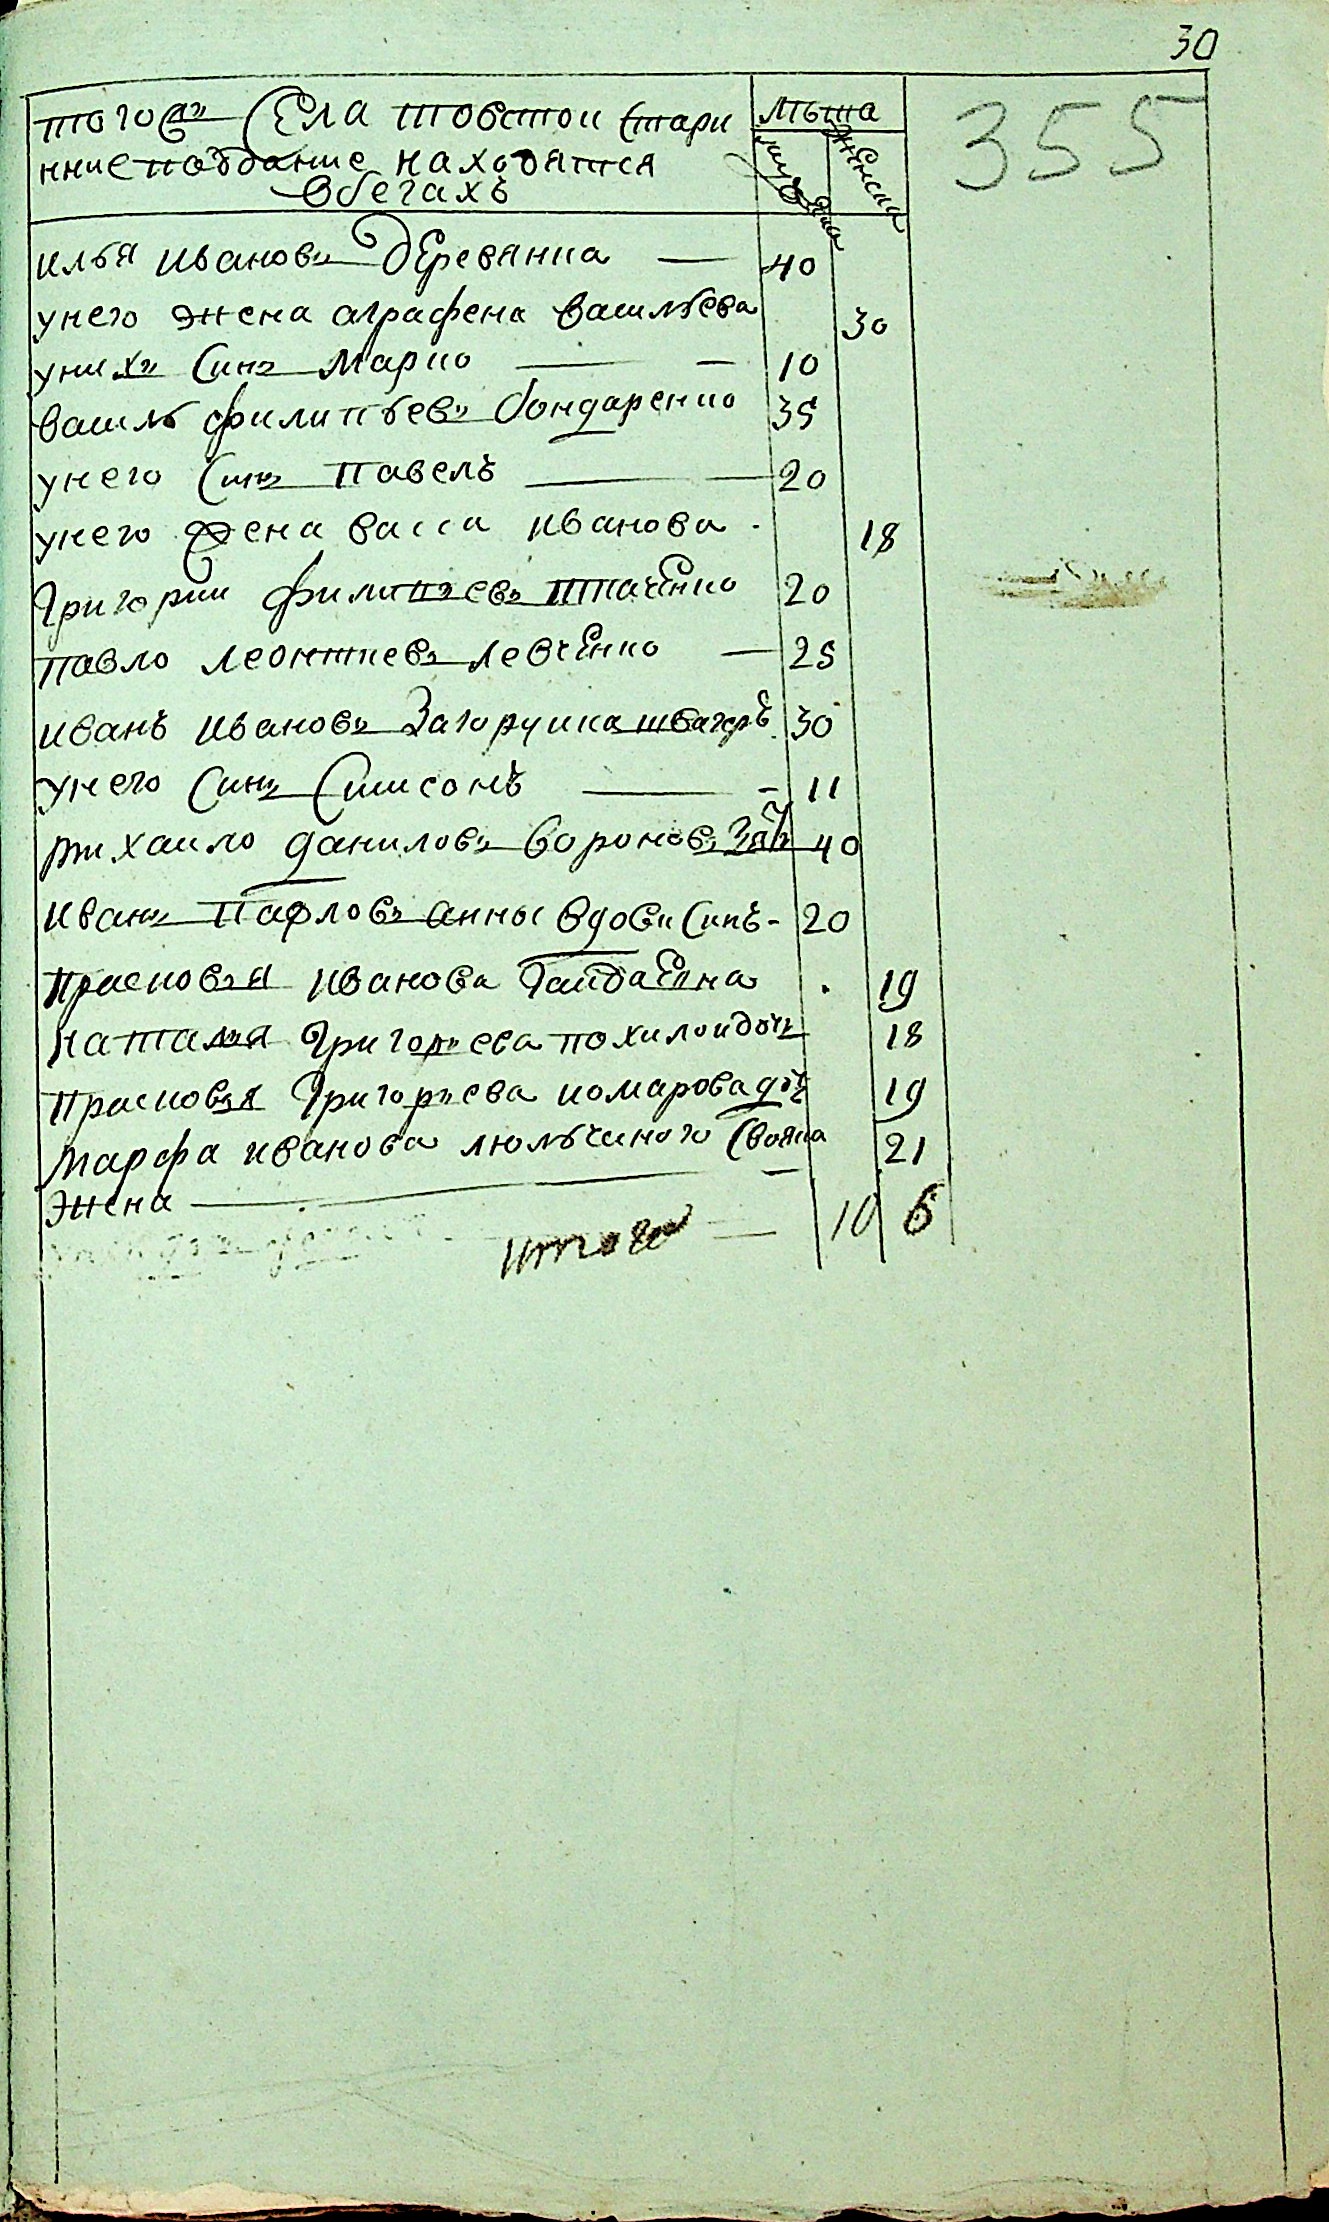 30
355
тогожъ села товстои стари
нние поддание находятся
в бегахъ
лѣта
мужеска
женска
илья ивановъ деревянка — 40
у него жена аграфена васильева 30
у нихъ синъ марко — 10
василь филипьевъ бондаренко 35
у него синъ павелъ — 20
у него жена васса иванова 18
григории филипъевъ ткаченко 20
павло леонтиевъ левченко — 25
иванъ ивановъ загоруика швагеръ 30
у него синъ симсонъ — 11
михаило даниловъ вороновъ зять 40
иванъ павловъ анны вдови синъ - 20
прасковъя иванова гаидаена 19
наталъя григоръева похилои дочь 18
прасковъя григоръева комарова дочь 19
марфа иванова люльчиного свояка 21
жена —
итого — 10 6